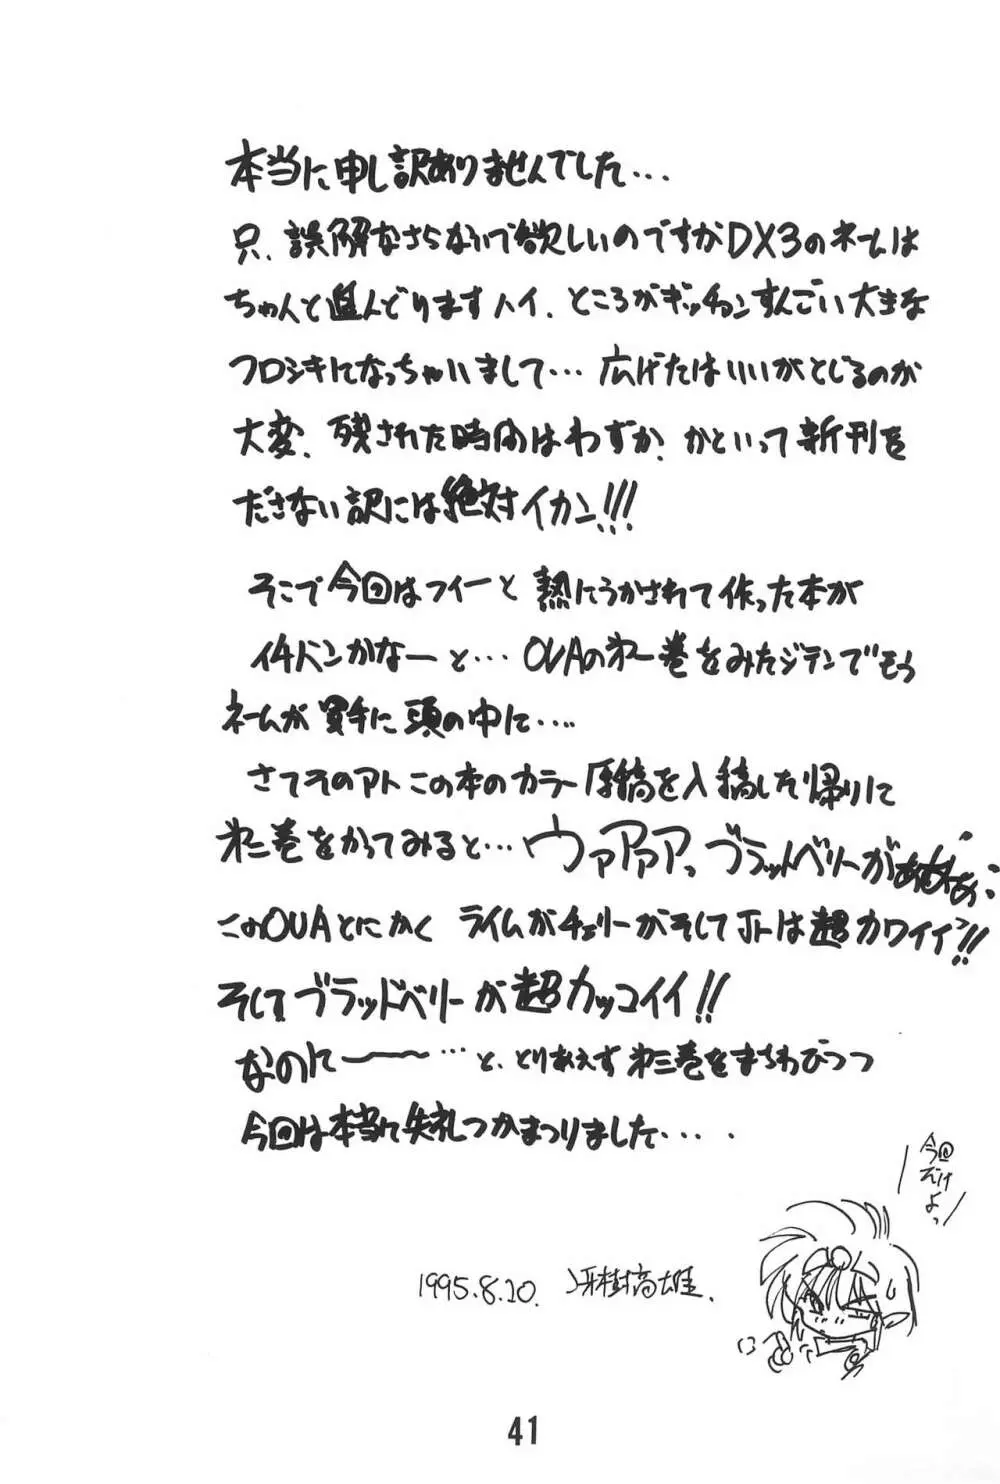 本当に申し訳ありませんでした…
只、誤解なさらないで欲しいのですがDX3のネームは
ちゃんと進んどりますハイ、ところがギッチョンすんごい大きな
フロシキになっちゃいまして… 広げたはいいがとじるのが
大変、残された時間はわずか、かといって新刊を
ださない訳には絶対イカン!!!
そこで今回はフイーと熱にうかされて作った本が
イチバンかなーと… OVAの第一巻をみたジテンでもう
ネームが勝手に頭の中に….
さてそのアトこの本のカラー原稿を入稿した帰りに
第二巻をかってみると… ウァアァアっ ブラッドベリーがぁぁぁぁ
このOVAとにかく ライムがチェリーがそしてJrは超カワイイ!!
そしてブラッドベリーが超カッコイイ!!
なのに〜〜 …と、とりあえず第三巻をまちわびつつ
今回は本当に失礼つかまつりました….
今回
だけ
よっ
1995.8.20. 樹高雄.
41